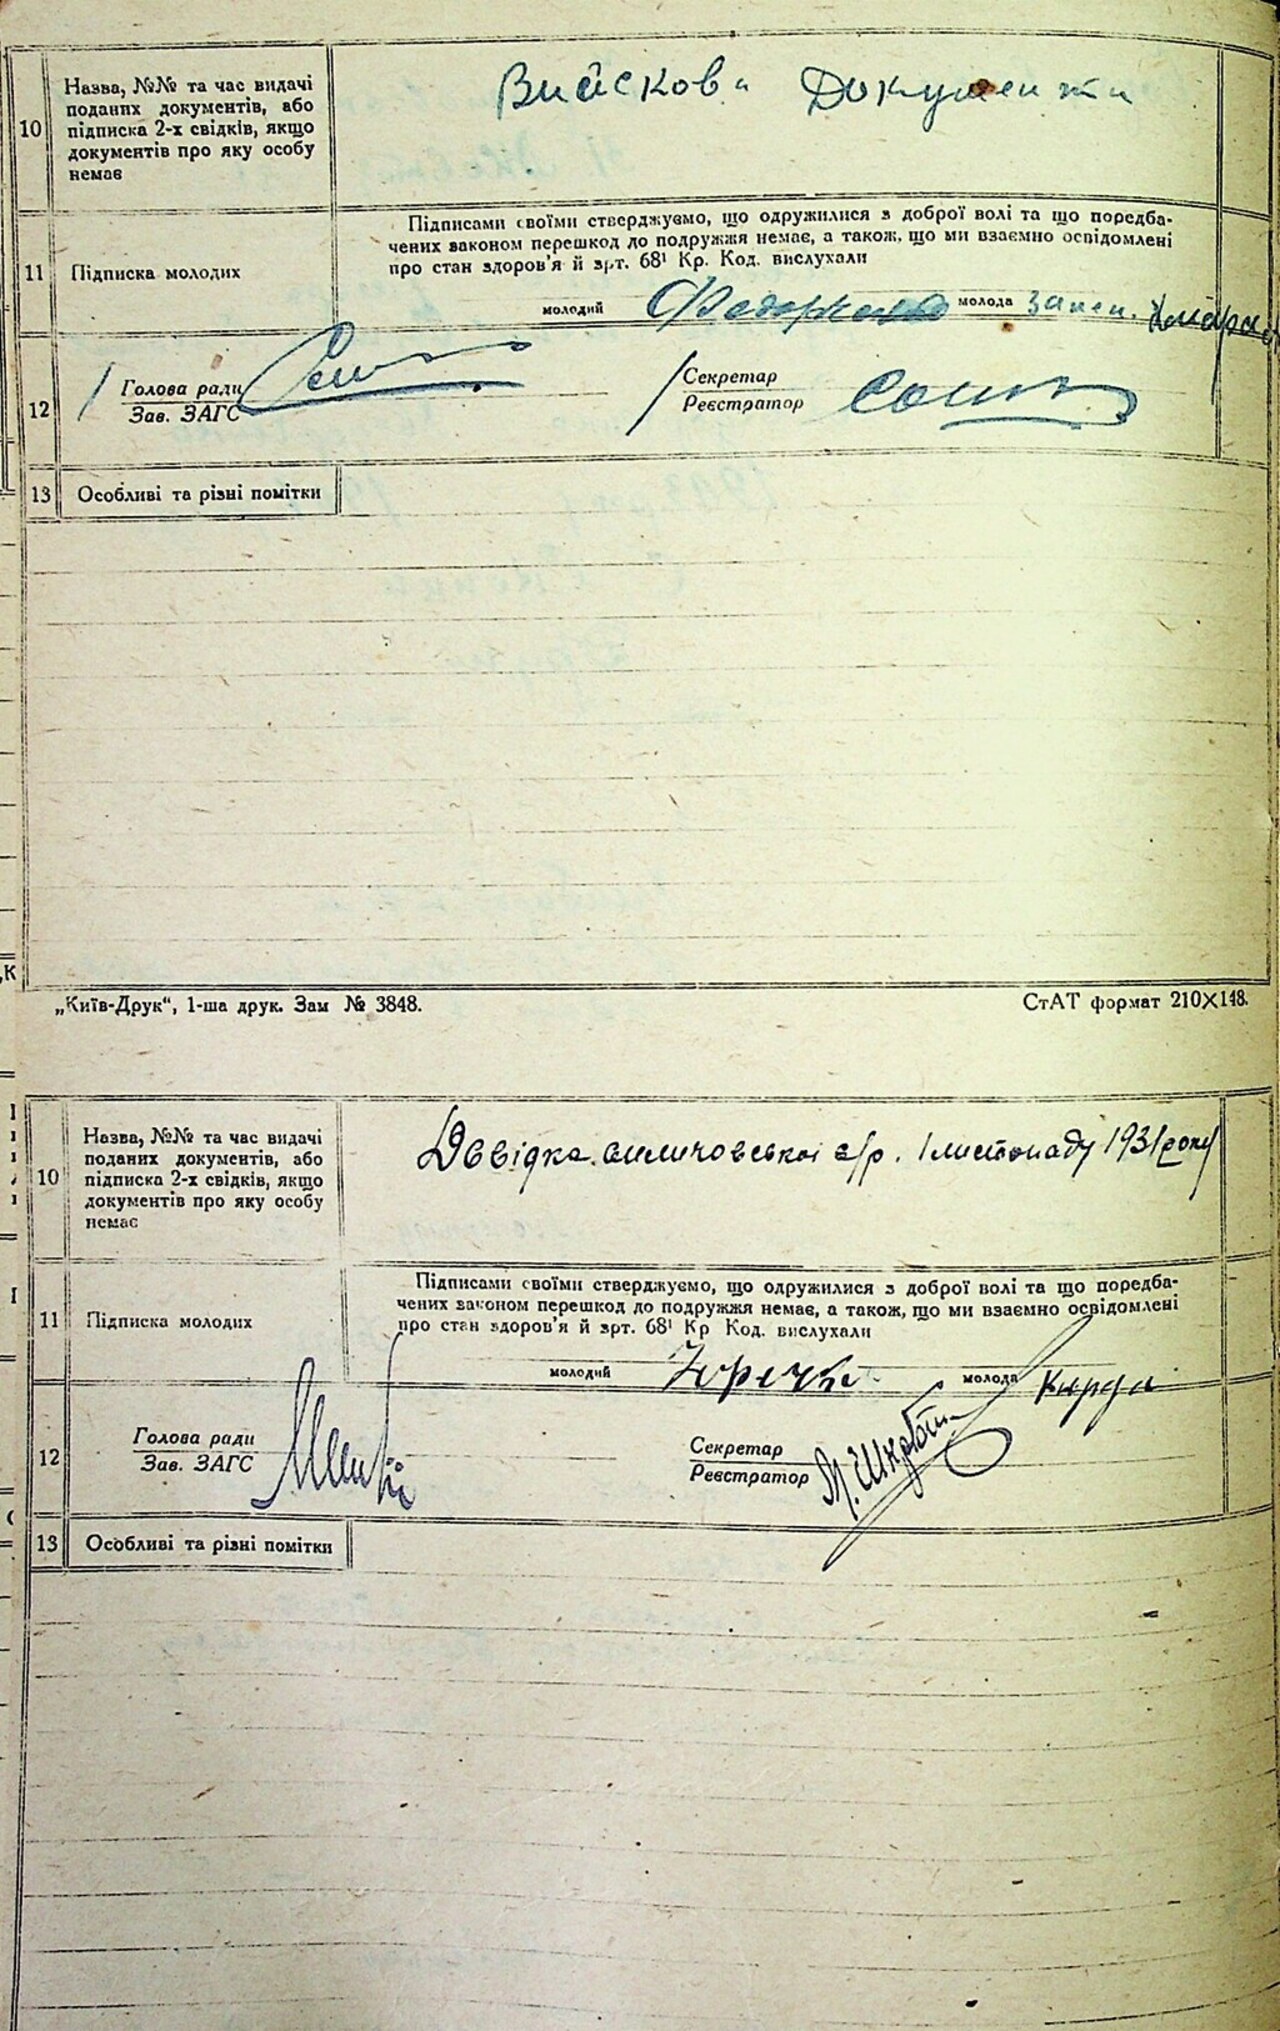 10
Назва, №№ та час видачі
поданих документів, або
підписка 2-х свідків, якщо
документів про яку особу
немає
Вийскова Документи
11
Підписка молодих
Підписами своїми стверджуємо, що одружилися з доброї волі та що передба-
чених законом перешкод до подружжя немає, а також, що ми взаємно освідомлені
про стан здоров'я й арт. 68¹ Кр. Код. вислухали
молодий Федоренко молода
12
Голова ради
Зав. ЗАГС
Секретар
Реєстратор
13
Особливі та різні помітки
„Київ-Друк“, 1-ша друк. Зам № 3848.
СтАТ формат 210X148.
10
Назва, №№ та час видачі
поданих документів, або
підписка 2-х свідків, якщо
документів про яку особу
немає
Довідка с/р. 1 листопаду 1931 року
11
Підписка молодих
Підписами своїми стверджуємо, що одружилися з доброї волі та що передба-
чених законом перешкод до подружжя немає, а також, що ми взаємно освідомлені
про стан здоров'я й арт. 68¹ Кр Код. вислухали
молодий молода Кирда
12
Голова ради
Зав. ЗАГС
Секретар
Реєстратор
13
Особливі та різні помітки